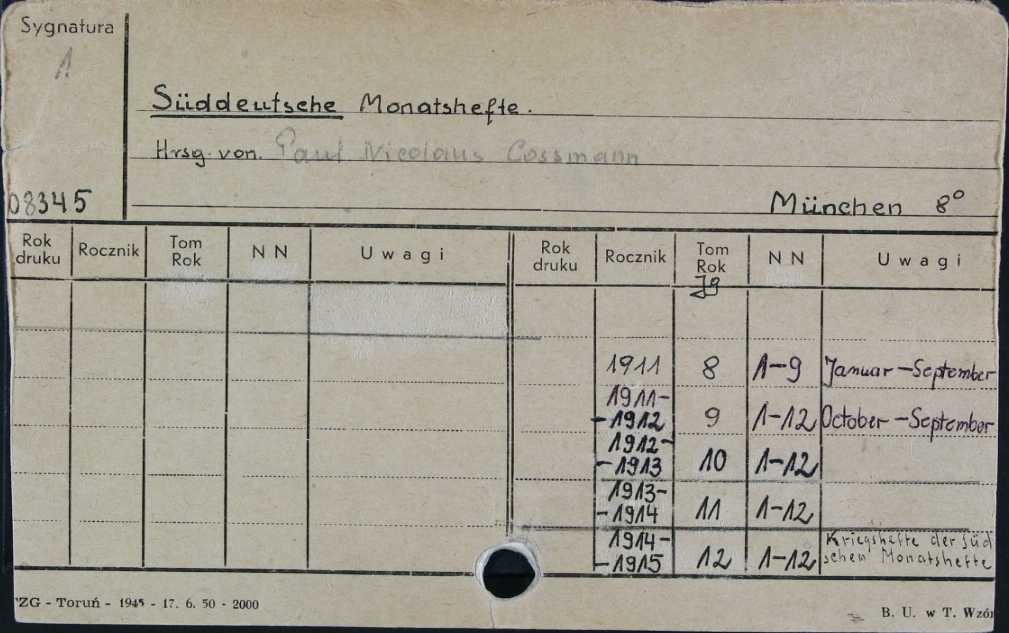 Sygnatura
1
Süddeutsche Monatshefte.
Hrsg. von. Paul Nicolaus Cossmann
08345
München 8°
Rok druku Rocznik Tom Rok N N Uwagi Rok druku Rocznik Tom Rok N N Uwagi
Jg
1911 8 1-9 Januar-September
1911-
-1912 9 1-12 October-September
1912-
-1913 10 1-12
1913-
-1914 11 1-12
1914- Kriegshefte der süd
-1915 12 1-12 schen Monatshefte
ZG - Toruń - 1945 - 17. 6. 50 - 2000
B. U. w T. Wzór